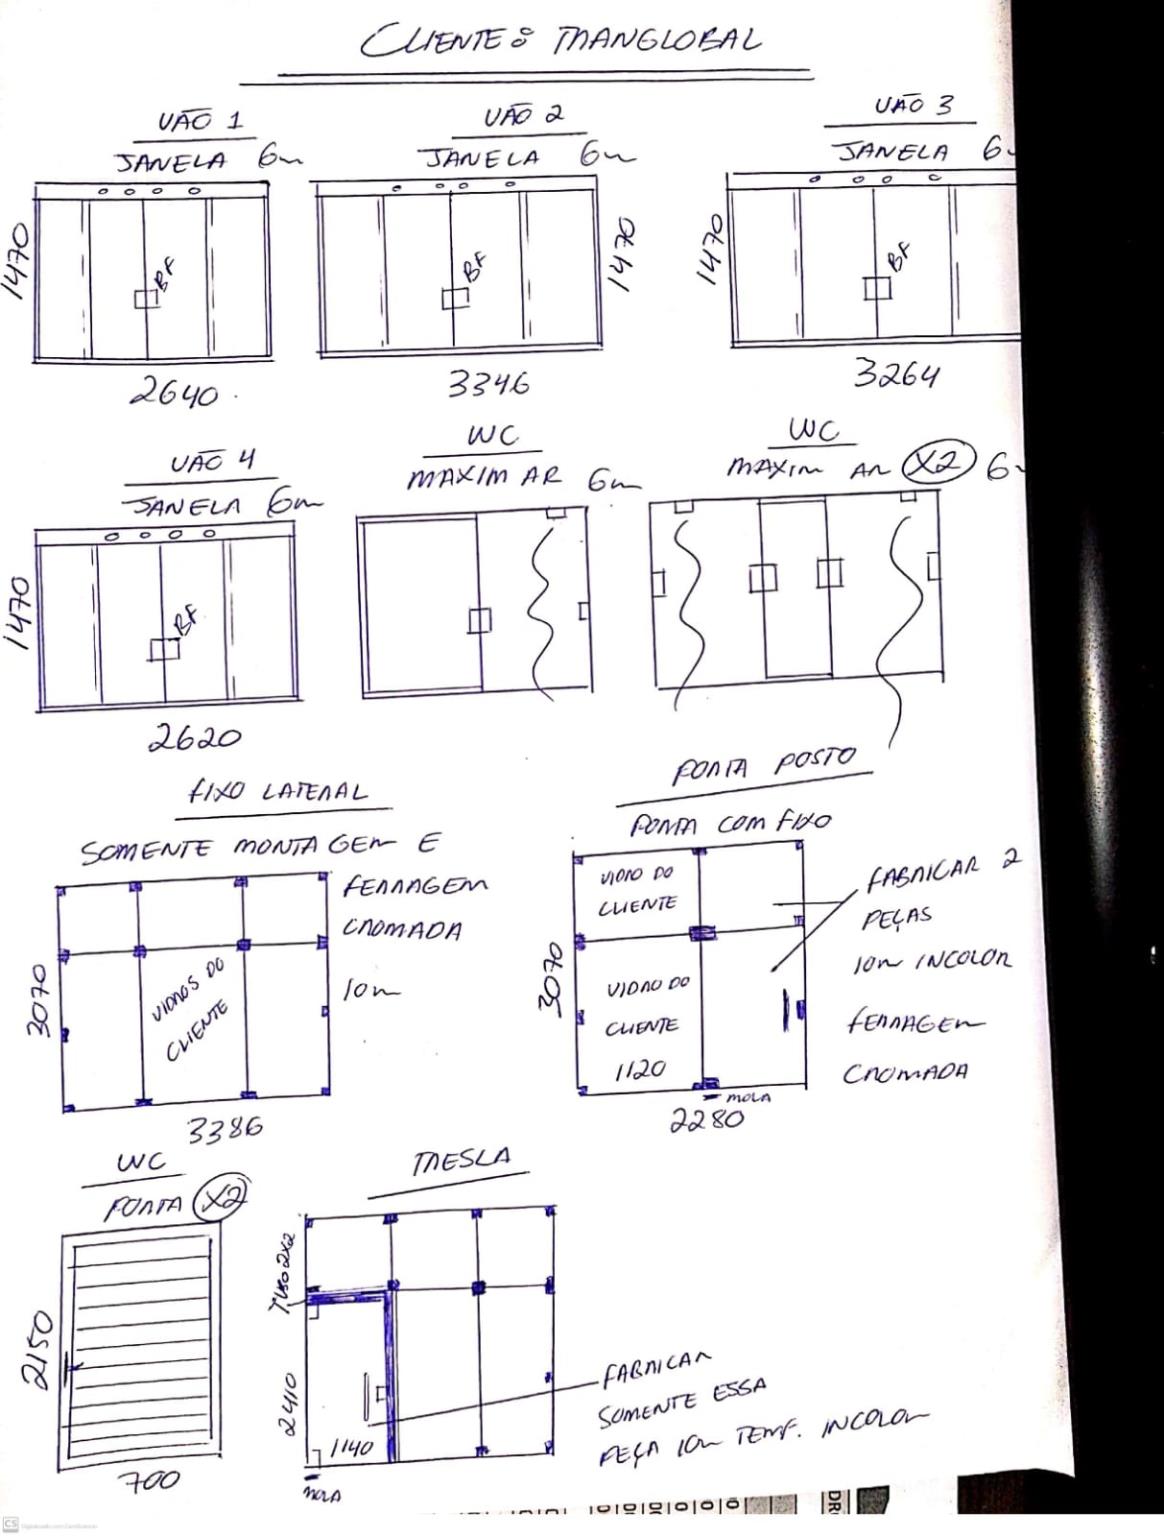 CLIENTE: TRANGLOBAL
VÃO 1
JANELA 6m
1470
BF
2640
VÃO 2
JANELA 6m
1470
BF
3346
VÃO 3
JANELA 6
1470
BF
3264
VÃO 4
JANELA 6m
1470
BF
2620
WC
MAXIM AR 6m
WC
MAXIM AR X2 6
FIXO LATERAL
SOMENTE MONTAGEM E
FERRAGEM
CROMADA
10m
3070
VIDROS DO
CLIENTE
3386
PORTA POSTO
PORTA COM FIXO
VIDRO DO
CLIENTE
3070
VIDRO DO
CLIENTE
1120
MOLA
2280
FABRICAR 2
PEÇAS
10m INCOLOR
FERRAGEM
CROMADA
WC
PORTA X2
2150
700
TRESLA
TUBO 2X2
2410
1140
MOLA
FABRICAR
SOMENTE ESSA
PEÇA 10m TEMP. INCOLOR
CS